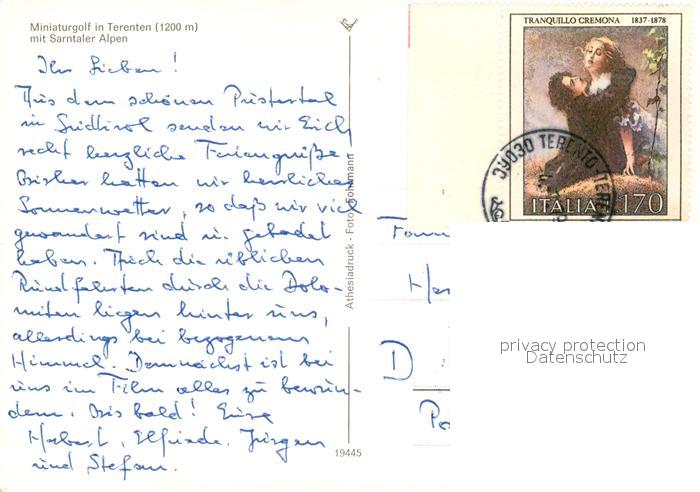 Miniaturgolf in Terenten (1200 m)
mit Sarntaler Alpen
Ihr Lieben!
Aus dem schönen Pustertal
in Südtirol senden wir Euch
recht herzliche Feriengrüße
Bisher hatten wir herrliches
Sonnenwetter, so daß wir viel
gewandert sind u. gebadet
haben. Auch die üblichen
Rundfahrten durch die Dolo-
miten liegen hinter uns,
allerdings bei bezogenem
Himmel. Demnächst ist bei
uns im Film alles zu bewun-
dern. Bis bald! Eure
Herbert, Elfriede, Jürgen
und Stefan.
19445
Athesiadruck - Foto
TRANQUILLO CREMONA 1837-1878
ITALIA 170
39030 TERENTO
Fam
Her
D
Po
privacy protection
Datenschutz